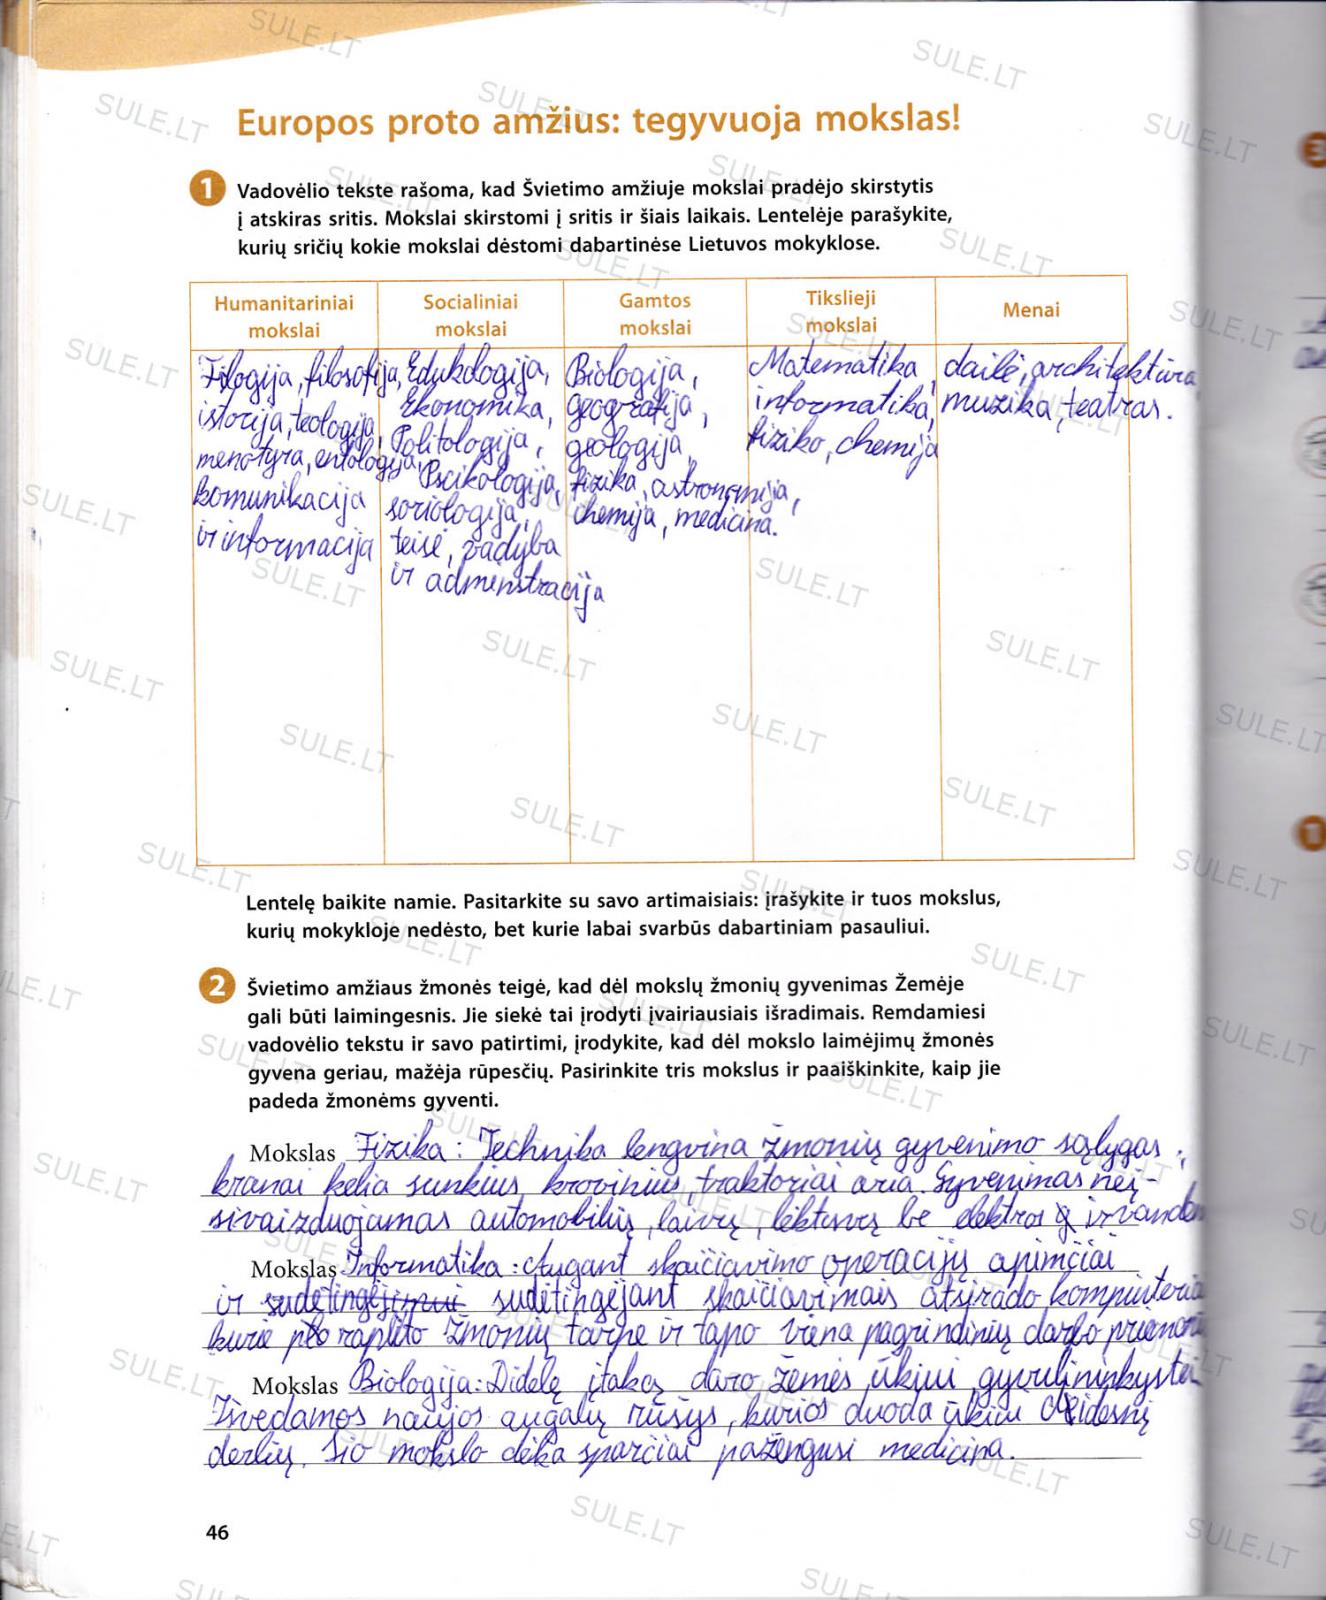 Europos proto amžius: tegyvuoja mokslas!
1 Vadovėlio tekste rašoma, kad Švietimo amžiuje mokslai pradėjo skirstytis
į atskiras sritis. Mokslai skirstomi į sritis ir šiais laikais. Lentelėje parašykite,
kurių sričių kokie mokslai dėstomi dabartinėse Lietuvos mokyklose.
Humanitariniai
mokslai
Filogija, filosofija,
istorija, teologija,
menotyra, entologija,
komunikacija
ir informacija
Socialiniai
mokslai
Edukologija,
Ekonomika,
Politologija,
Pscikologija,
soriologija,
teisė, vadyba
ir admenstracija
Gamtos
mokslai
Biologija,
geografija,
geologija,
fizika, astronomija,
chemija, medicina.
Tikslieji
mokslai
Matematika,
informatika,
fiziko, chemija
Menai
dailė, architektūra
muzika, teatras.
Lentelę baikite namie. Pasitarkite su savo artimaisiais: įrašykite ir tuos mokslus,
kurių mokykloje nedėsto, bet kurie labai svarbūs dabartiniam pasauliui.
2 Švietimo amžiaus žmonės teigė, kad dėl mokslų žmonių gyvenimas Žemėje
gali būti laimingesnis. Jie siekė tai įrodyti įvairiausiais išradimais. Remdamiesi
vadovėlio tekstu ir savo patirtimi, įrodykite, kad dėl mokslo laimėjimų žmonės
gyvena geriau, mažėja rūpesčių. Pasirinkite tris mokslus ir paaiškinkite, kaip jie
padeda žmonėms gyventi.
Mokslas Fizika: Technika lengvina žmonių gyvenimo sąlygas,
kranai kelia sunkius krovinius, traktoriai aria. Gyvenimas nei-
sivaizduojamas automobilių, laivų, lėktuvų be elektros ir vanden
Mokslas Informatika: Augant skaičiavimo operacijų apimčiai
ir sudėtingėjant skaičiavimais atsirado kompiuteriai
kurie paplito žmonių tarpe ir tapo viena pagrindinių darbo priemoni
Mokslas Biologija: Didelę įtaką daro žemės ūkiui, gyvulininkystei
Išvedamos naujos augalų rūšys, kurios duoda ūkiui didesnį
derlių. Šio mokslo dėka sparčiai pažengusi medicina.
46
SULE.LT